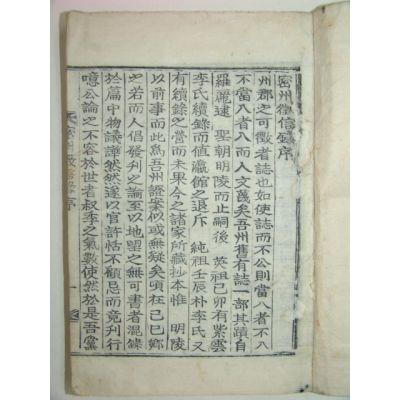 密州徵信錄序
州郡之可徵者誌也如使誌而不公則當入者不入
不當入者入而人文蔑矣吾州舊有誌一部其蹟自
羅麗逮 聖朝明陵而止嗣後 英祖己卯有紫雲
李氏續錄而値瀛館之退斥 純祖壬辰朴李氏又
有續錄之營而未果今之諸家所藏抄本惟 明陵
以前事而此爲吾州證案似或無疑矣頃在己巳鄕
之若而人倡發刋之論至以地望之無可書者混錄
於篇中物議譁然然遂以官許恬不顧忌而竟刋行
噫公論之不容於世者叔季之氣數使然於是吾黨
密州徵信錄序
一